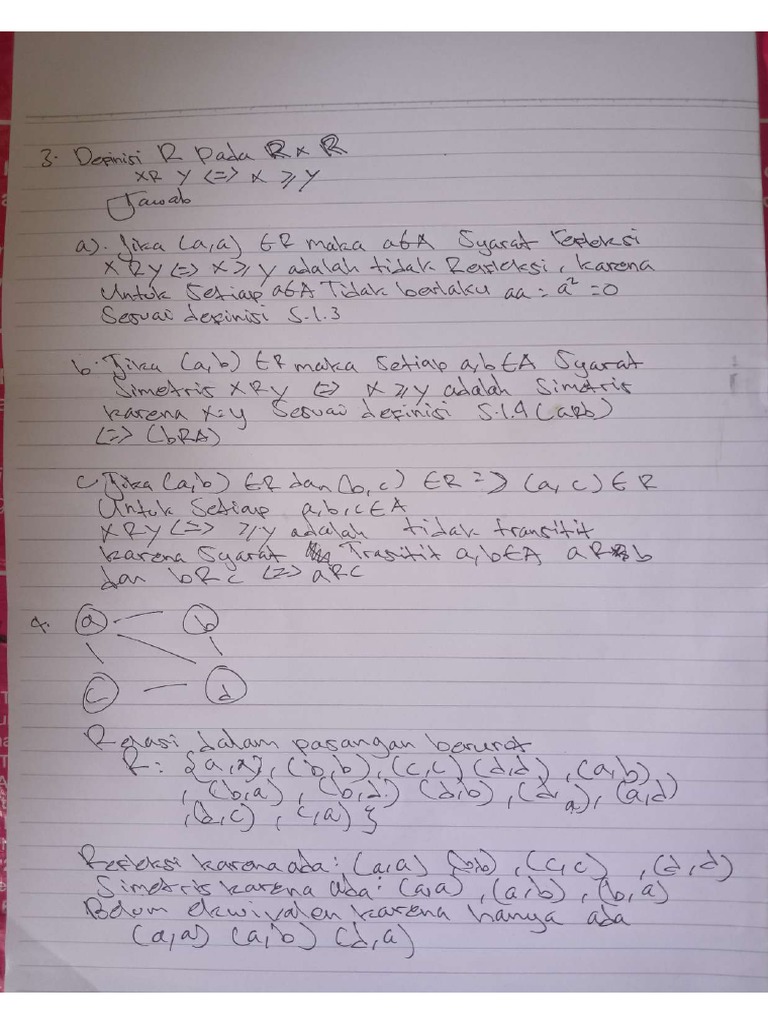 3. Definisi R Pada R x R
xR y <=> x ≥ y
Jawab
a). Jika (a,a) ∈R maka a∈A Syarat refleksi
x R y <=> x ≥ y adalah tidak Refleksi, karena
Untuk Setiap a∈A Tidak berlaku aa = a² = 0
Sesuai definisi 5.1.3
b. Jika (a,b) ∈R maka Setiap a,b ∈A Syarat
Simetris x R y <=> x ≥ y adalah Simetris
karena x=y Sesuai definisi 5.1.4 (aRb)
<=> (bRA)
c. Jika (a,b) ∈R dan (b,c) ∈R => (a,c) ∈ R
Untuk Setiap a,b,c ∈A
x R y <=> ≥ y adalah tidak transitit
karena Syarat Trasitit a,b∈A a R b
dan b R c <=> aRC
4. a b
c d
Relasi dalam pasangan berurut
R: {a,x}, (b,b), (c,c) (d,d), (a,b)
, (b,a), (b,d) (d,b), (d, a), (a,d)
, (b,c), c,a) }
Refleksi karena ada: (a,a) (b,b), (c,c) , (d,d)
Simetris karena ada: (a,a), (a,b), (b,a)
Belum ekwivalen karena hanya ada
(a,a) (a,b) (d,a)